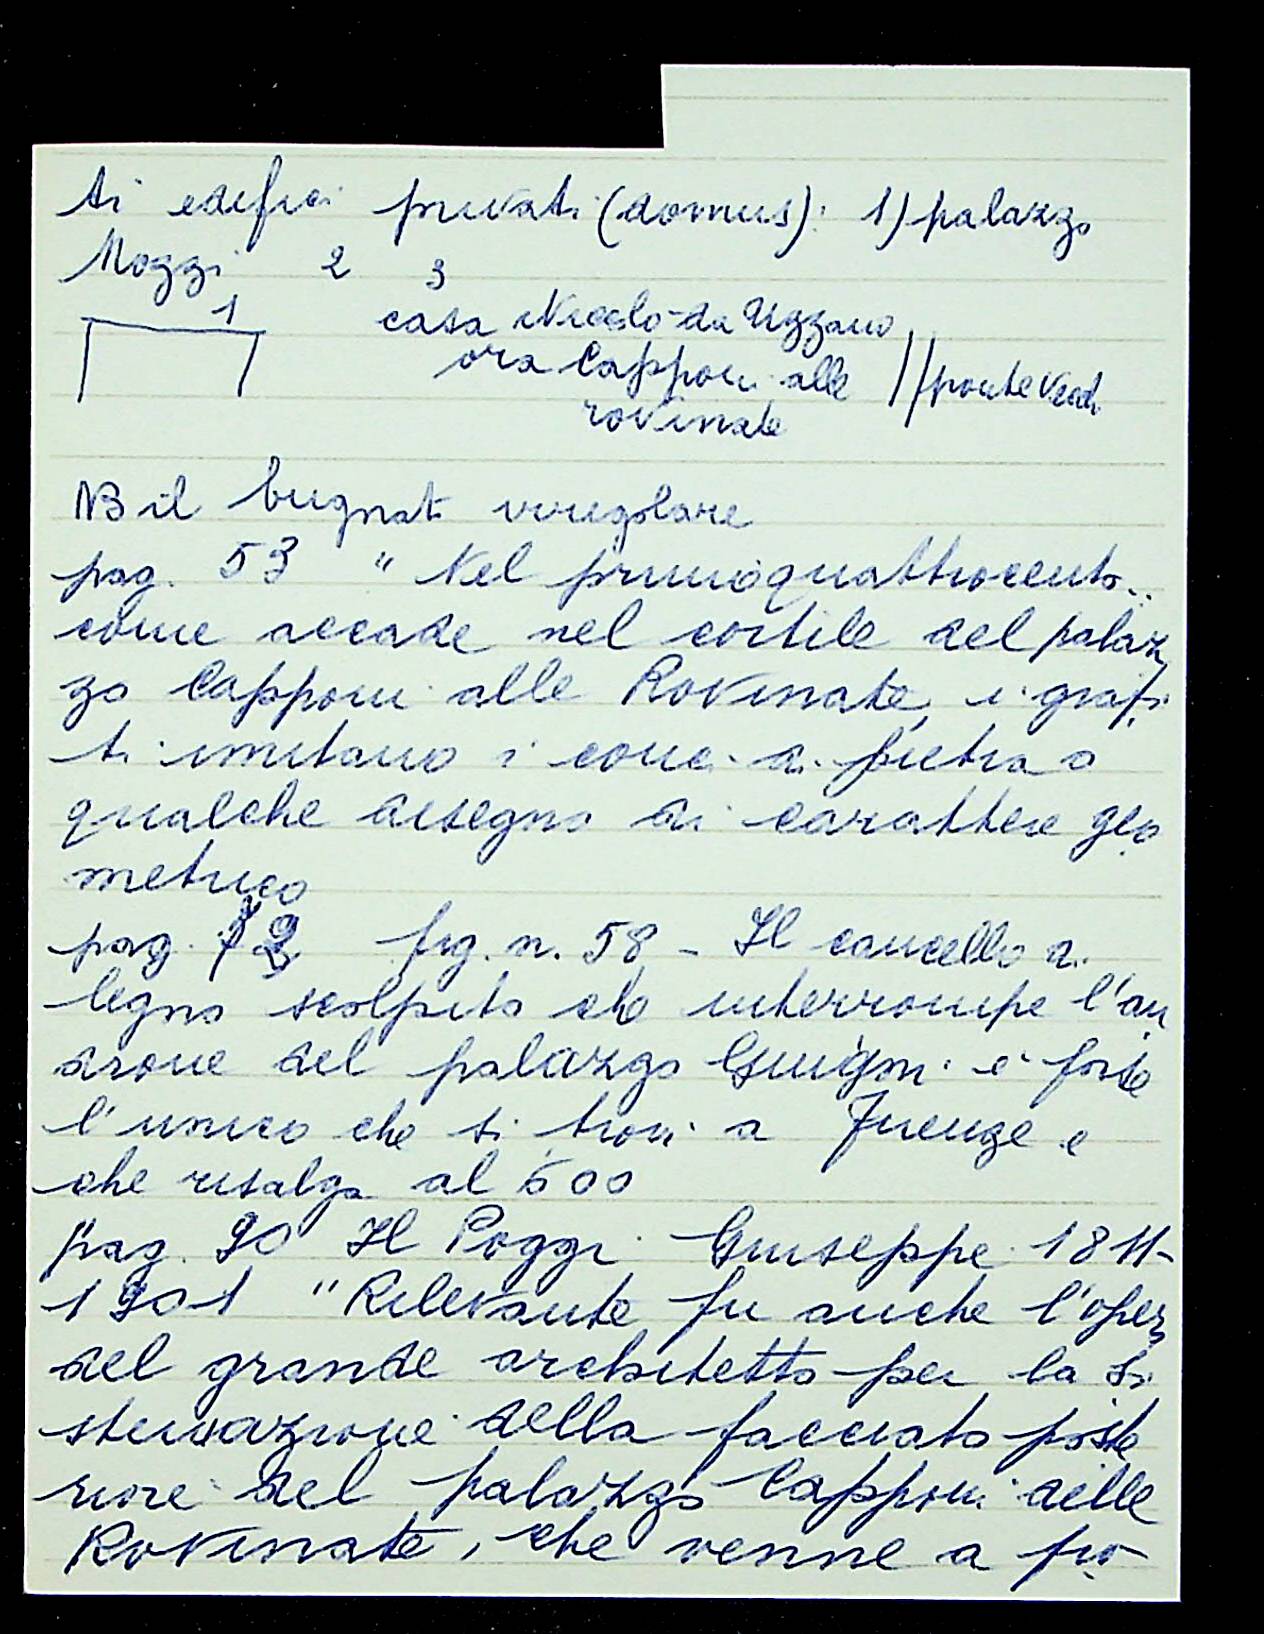 ti edifici privati (domus): 1) palazzo
Mozzi 2 3
1 casa Niccolo da Uzzano
ora Capponi alle // ponte Vecch
rovinate
NB il bugnat irregolare
pag. 53 " Nel primo quattrocento..
come accade nel cortile del palaz
zo Capponi alle Rovinate, i graffi
ti imitano i conci di pietra o
qualche disegno di carattere geo
metrico
pag. fig. n. 58 - Il cancello di
legno scolpito che interrompe l'an
drone del palazzo Grifoni è forse
l'unico che si trovi a Firenze e
che risalga al 500
pag. 90 Il Poggi Giuseppe 1811-
1901 "Rilevante fu anche l'opera
del grande architetto per la si
stemazione della facciata poste
riore del palazzo Capponi delle
Rovinate, che venne a fro